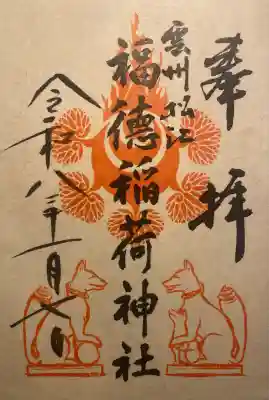 奉拝
雲州松江
福徳稲荷神社
令和八年一月日